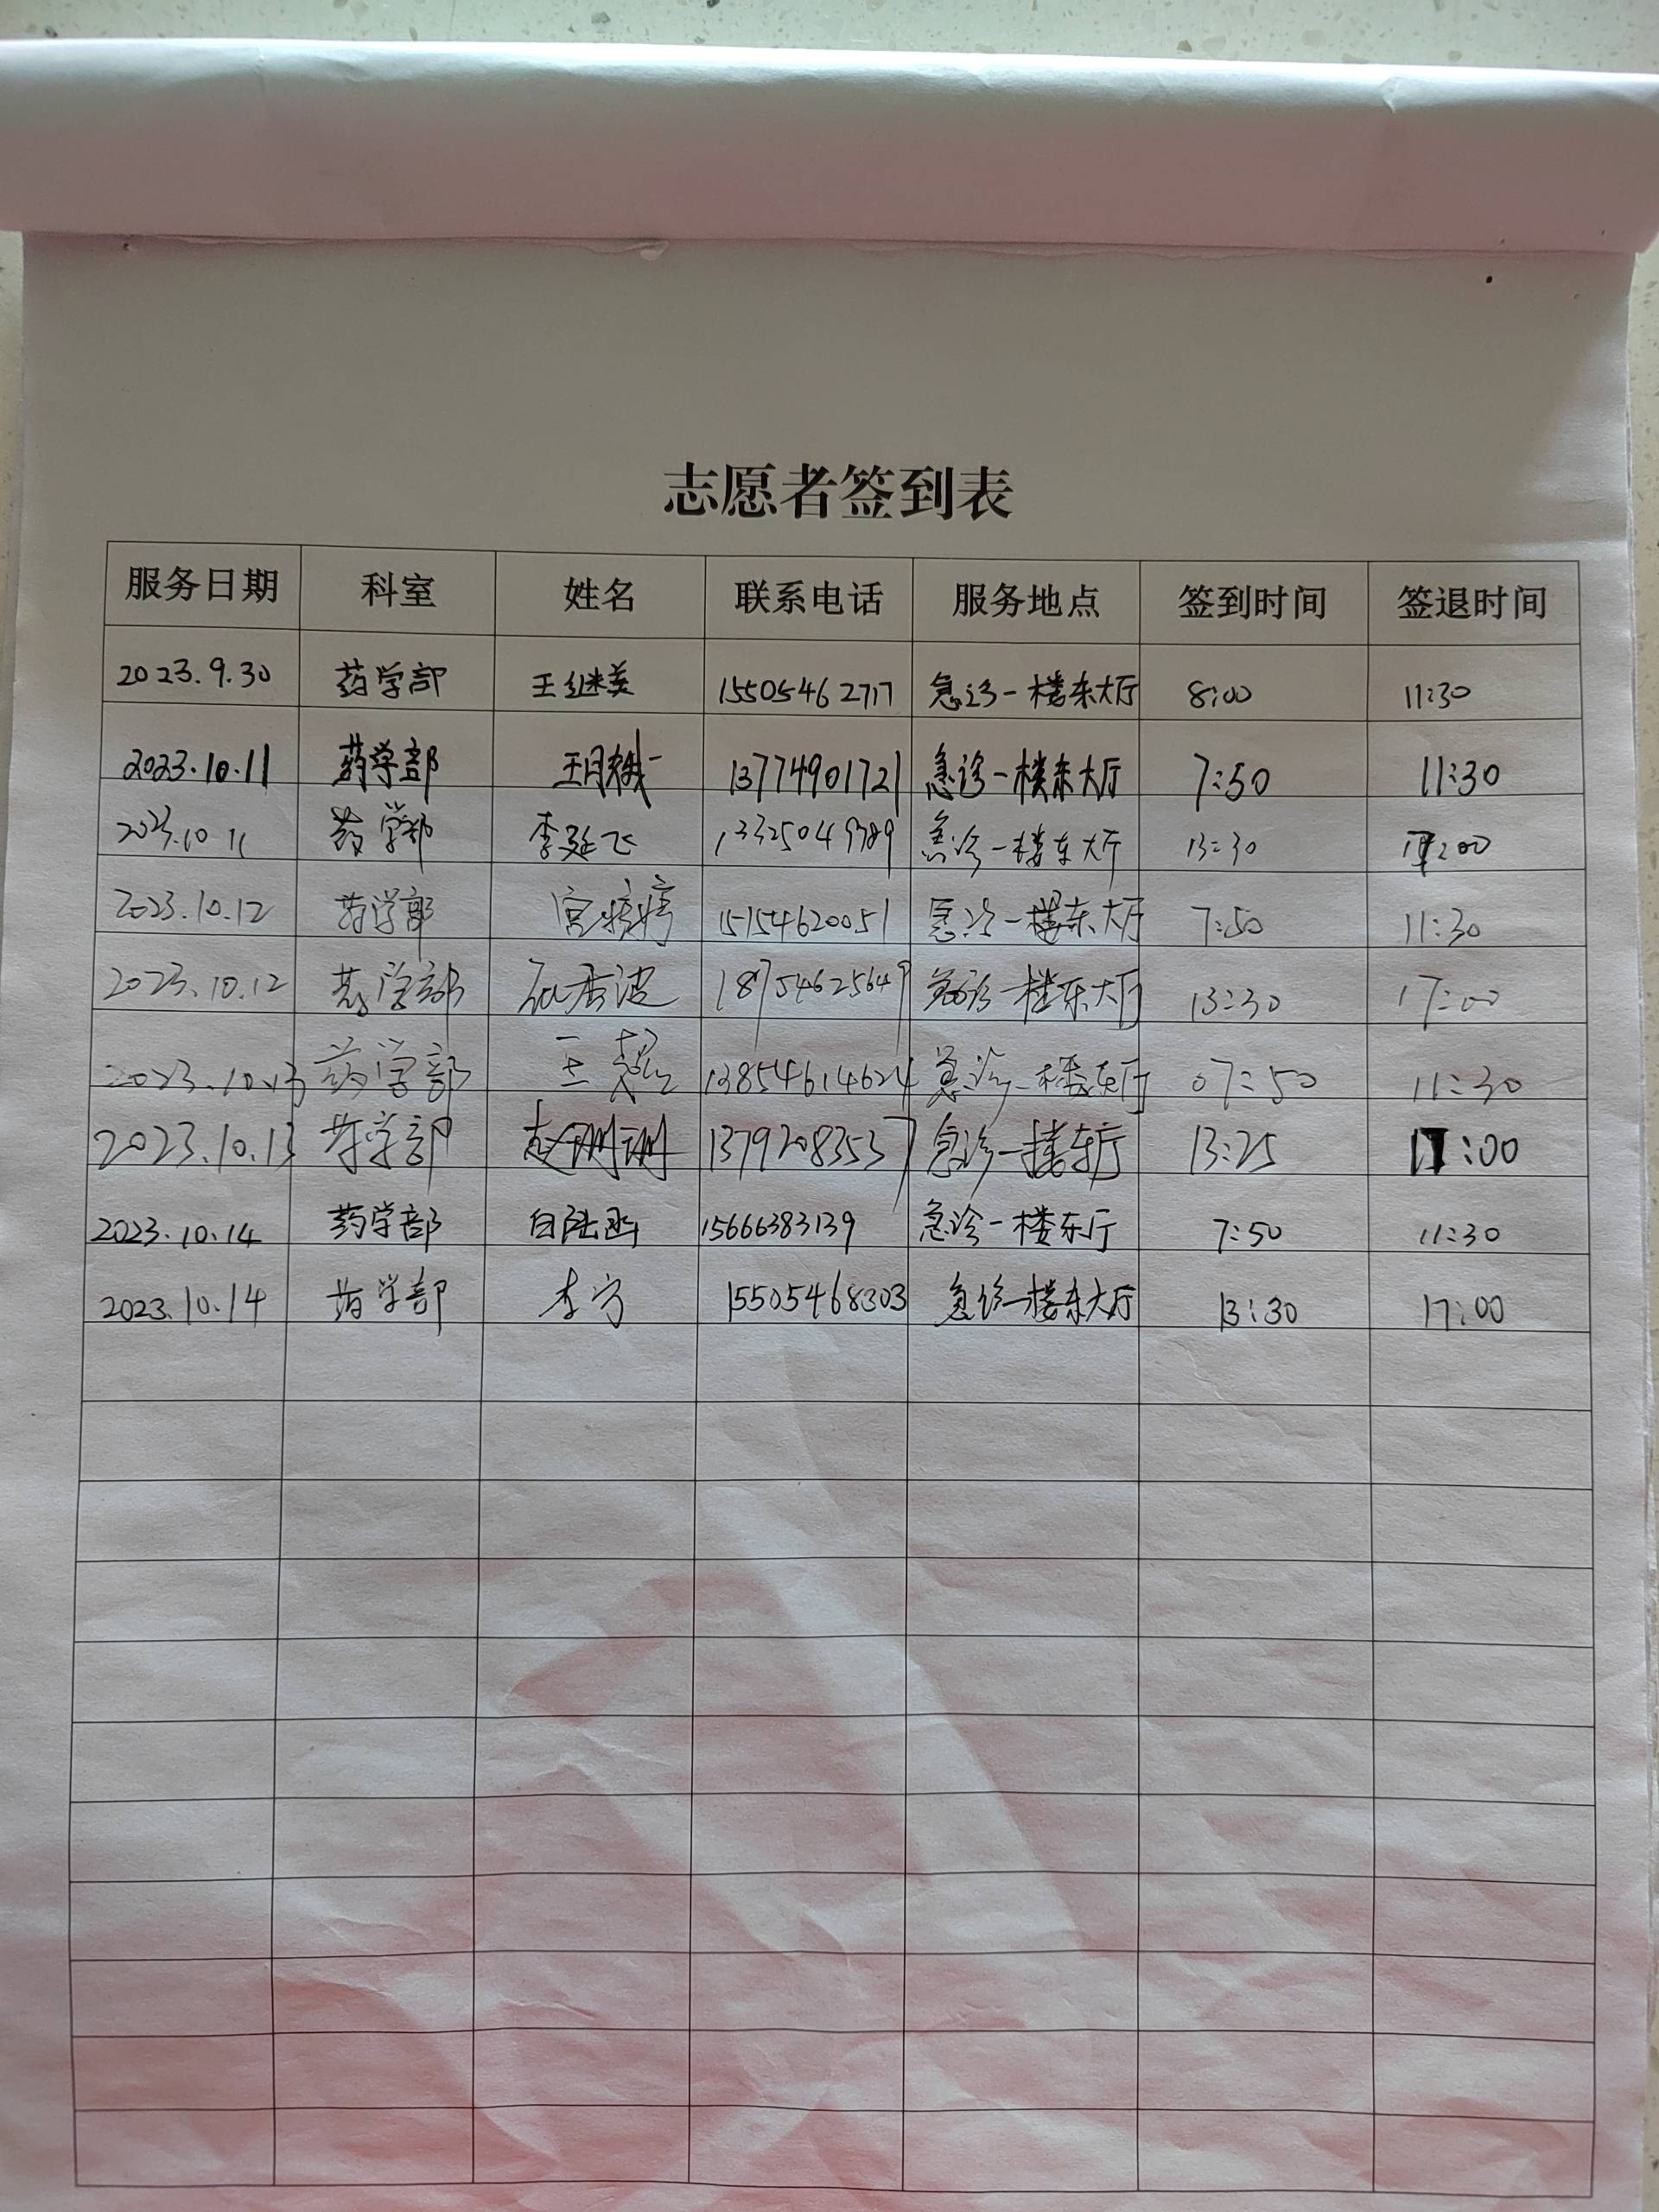 志愿者签到表
服务日期 科室 姓名 联系电话 服务地点 签到时间 签退时间
2023.9.30 药学部 王继美 15505462717 急诊一楼东大厅 8:00 11:30
2023.10.11 药学部 13774901721 急诊一楼东大厅 7:50 11:30
2023.10.11 药学部 李延飞 13325049789 急诊一楼东大厅 13:30 17:00
2023.10.12 药学部 宫婷婷 15154620051 急诊一楼东大厅 7:50 11:30
2023.10.12 药学部 18754625649 急诊一楼东大厅 13:30 17:00
2023.10.13 药学部 王慧 13854614624 急诊一楼东厅 07:50 11:30
2023.10.13 药学部 赵珊珊 13792083537 急诊一楼东厅 13:25 17:00
2023.10.14 药学部 15666383139 急诊一楼东厅 7:50 11:30
2023.10.14 药学部 李宁 15505468303 急诊一楼东大厅 13:30 17:00